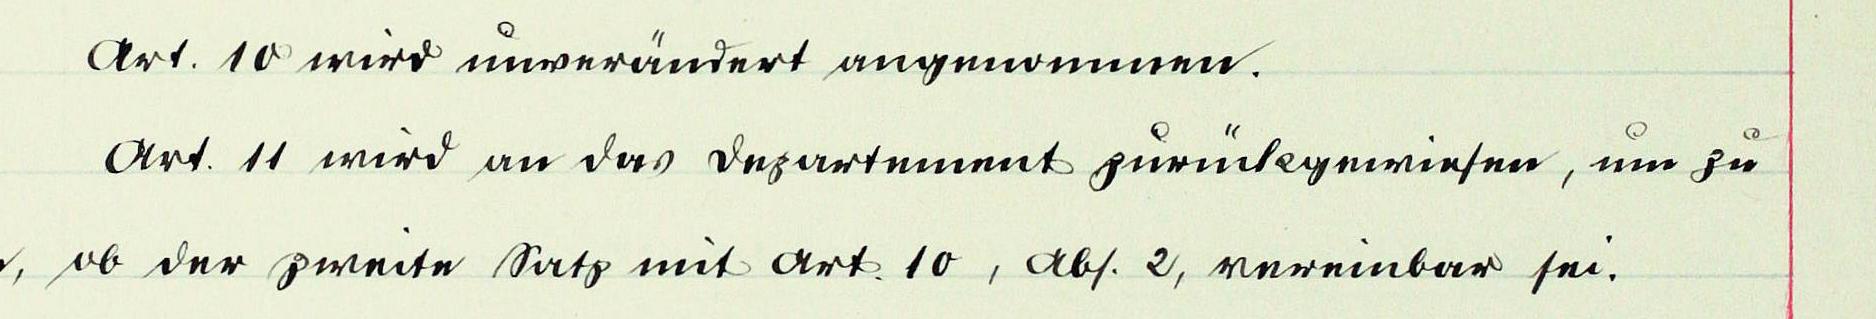 Art. 10 wird unverändert angenommen.
Art. 11 wird an das Departement zurückgewiesen, um zu
, ob der zweite Satz mit Art. 10, Abs. 2, vereinbar sei.